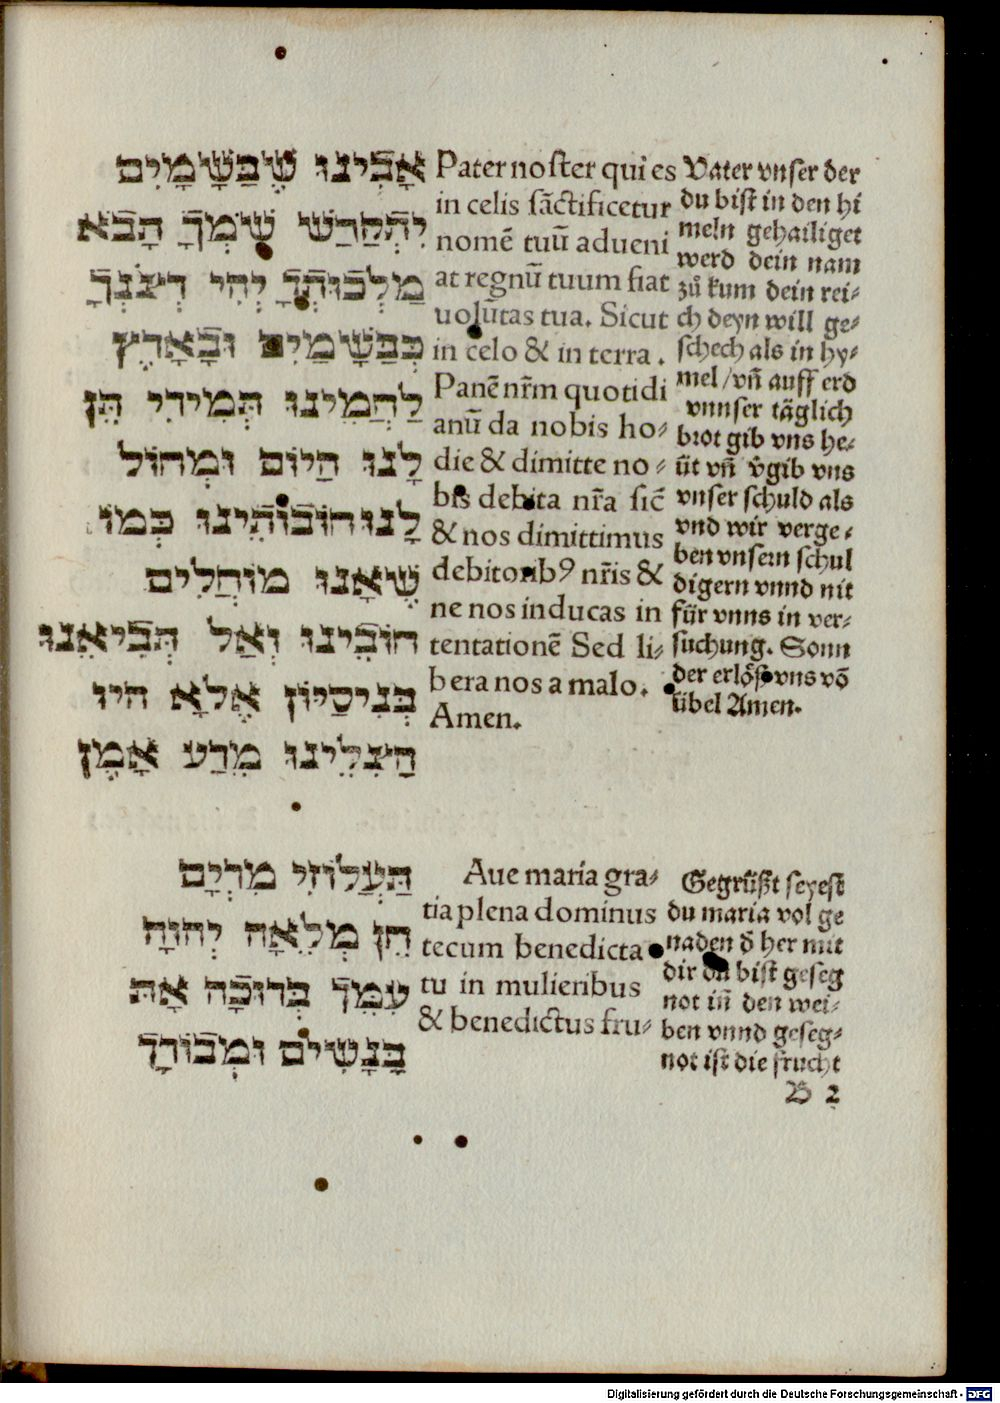 אָבִינוּ שֶׁבַּשָּׁמַיִם
יִתְקַדַּשׁ שִׁמְךָ הָבֹא
מַלְכוּתְךָ יְהִי רְצֹנְךָ
כְּבַשָּׁמַיִם וּבָאָרֶץ
לַחְמֵינוּ תְּמִידִי תֵּן
לָנוּ הַיּוֹם וּמְחוֹל
לָנוּ חוֹבוֹתֵינוּ כְּמוֹ
שֶׁאָנוּ מוֹחֲלִים
חוֹבֵינוּ וְאַל תְּבִיאֵנוּ
בְּנִיסַיּוֹן אֶלָּא
הַצִּלֵינוּ מֵרַע אָמֵן
Pater noster qui es
in celis sāctificetur
nomē tuū adueni
at regnū tuum fiat
uolūtas tua. Sicut
in celo & in terra .
Panē nr̄m quotidi
anū da nobis ho-
die & dimitte no-
bis debita nr̄a sic̄
& nos dimittimus
debitorib9 nr̄is &
ne nos inducas in
tentationē Sed li-
bera nos a malo.
Amen.
Vater vnser der
du bist in den hi
meln gehailiget
werd dein nam
zů kum dein rei-
ch deyn will ge-
schech als in hy-
mel / vn̄ auff erd
vnnser täglich
brot gib vns he-
üt vn̄ v̄gib vns
vnser schuld als
vnd wir verge-
ben vnsern schul
digern vnnd nit
für vnns in ver-
suchung. Sonn
der erlöß vns vō
übel Amen.
מִרְיָם
חֵן מְלֵאָה יְהוָה
עִמֵּךְ בְּרוּכָה אַתְּ
בַּנָּשִׁים וּמְבוֹרָךְ
Aue maria gra-
tia plena dominus
tecum benedicta
tu in mulieribus
& benedictus fru-
Gegrüßt seyest
du maria vol ge
naden d̄ her mit
dir du bist geseg
not in̄ den wei-
ben vnnd geseg-
not ist die frucht
B 2
Digitalisierung gefördert durch die Deutsche Forschungsgemeinschaft - DFG